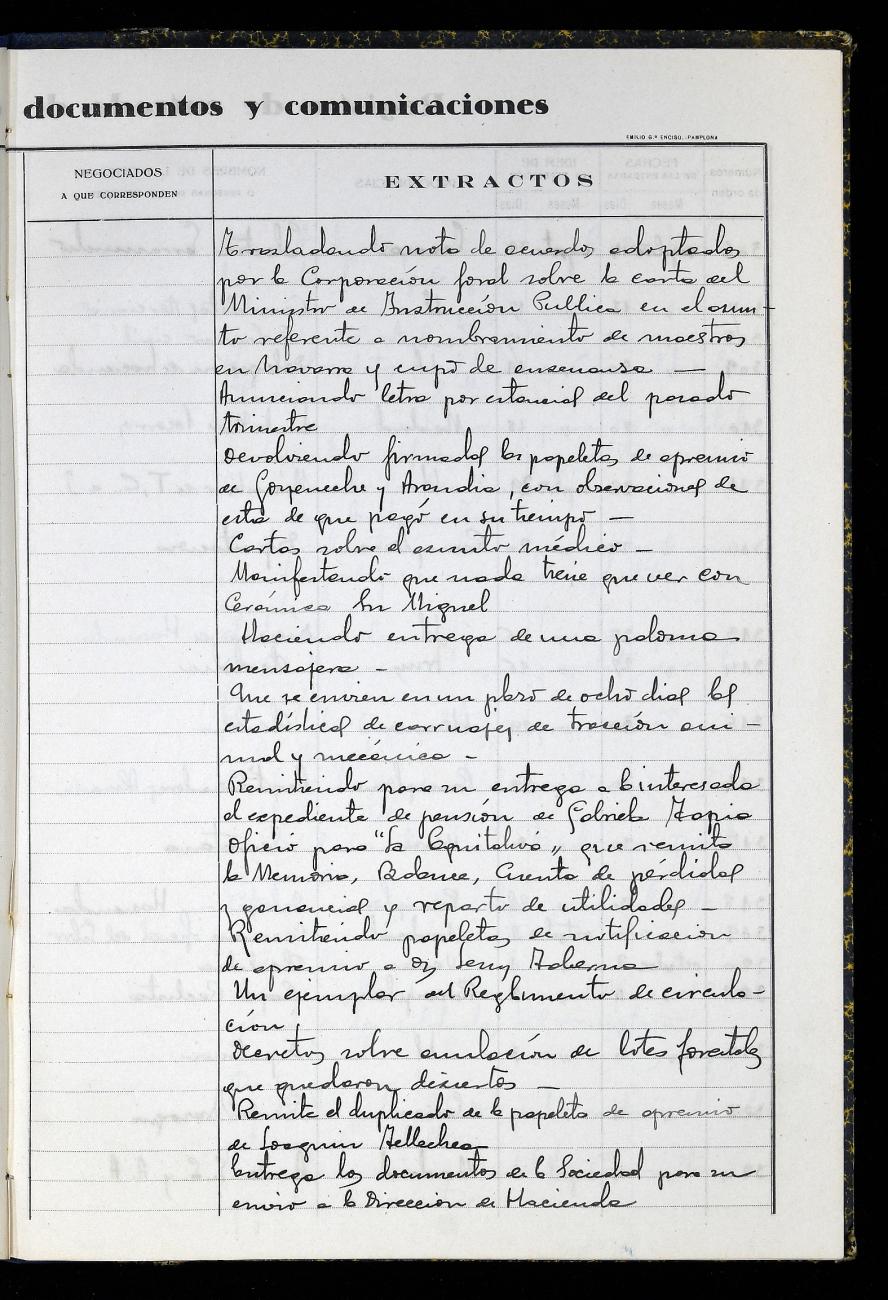 documentos y comunicaciones
EMILIO G.ª ENCISO.-PAMPLONA
NEGOCIADOS
A QUE CORRESPONDEN
EXTRACTOS
Trasladando nota de acuerdos adoptados
por la Corporación foral sobre la carta del
Ministro de Instrucción Publica en el asun-
to referente a nombramiento de maestros
en Navarra y cupo de enseñansa —
Anunciando letra por estancias del pasado
trimestre
Devolviendo firmadas las papeletas de apremio
de Goyeneche y Arandia, con observaciones de
esta de que pagó en su tiempo —
Cartas sobre el asunto médico —
Manifestando que nada tiene que ver con
Cerámica San Miguel
Haciendo entrega de una paloma
mensajera —
Que se envien en un plazo de ocho dias las
estadísticas de carruajes de tracción ani-
mal y mecánica —
Remitiendo para su entrega a la interesada
el expediente de pensión de Gabriela Tapia
Oficio para "La Equitativa" que remita
la Memoria, Balance, Cuenta de pérdidas
y ganancias y reparto de utilidades —
Remitiendo papeletas de notificacion
de apremio a Taberna
Un ejemplar del Reglamento de circula-
ción
Decretos sobre anulación de lotes forestales
que quedaron desiertos —
Remite el duplicado de la papeleta de apremio
de Joaquin Tellechea
Entrega los documentos de la Sociedad para su
envio a la Direccion de Hacienda